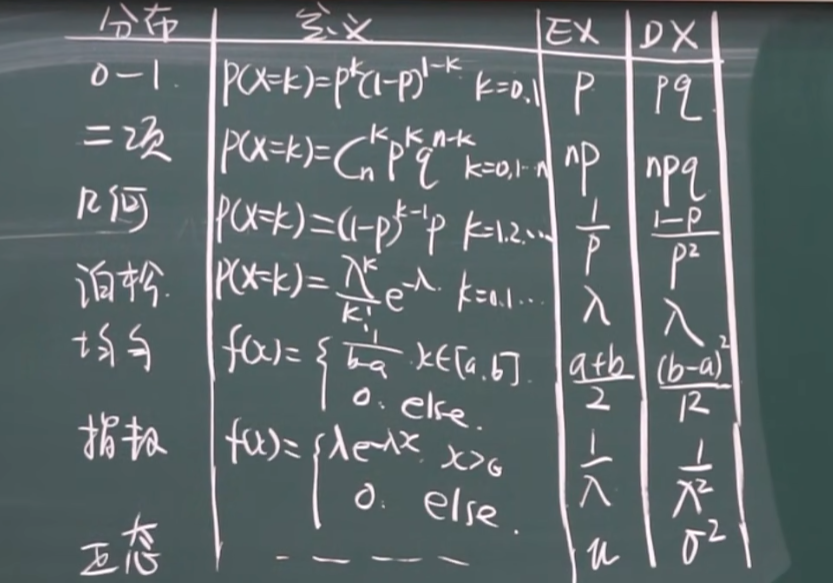 分布 定义 EX DX
0-1 P(X=k)=p^k(1-p)^{1-k} k=0,1 p pq
二项 P(X=k)=C_n^k p^k q^{n-k} k=0,1…n np npq
几何 P(X=k)=(1-p)^{k-1}p k=1,2,… 1/p (1-p)/p²
泊松 P(X=k)=λ^k/k! e^{-λ} k=0,1… λ λ
均匀 f(x)={ 1/(b-a) x∈[a,b] (a+b)/2 (b-a)²/12
0. else.
指数 f(x)={ λe^{-λx} x>0 1/λ 1/λ²
0. else.
正态 ———— u σ²